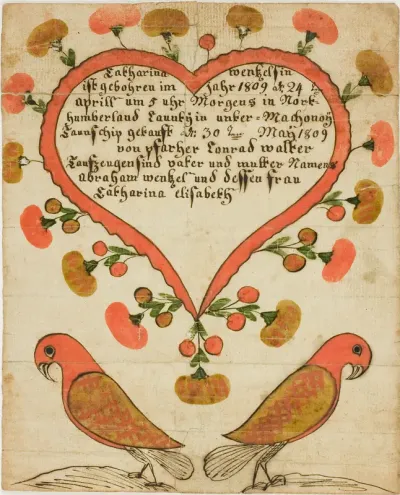 Catharina wentzlsin
ist gebohren im Jahr 1809 d 24
aprill um 5 uhr Morgens in Nort
humberland Caunty in unter Machonoy
Taunschip getauft 30 May 1809
von pfarher Conrad walter
Taufzeugen sind vater und mutter Namens
abraham wentzel und dessen frau
Catharina elisabeth